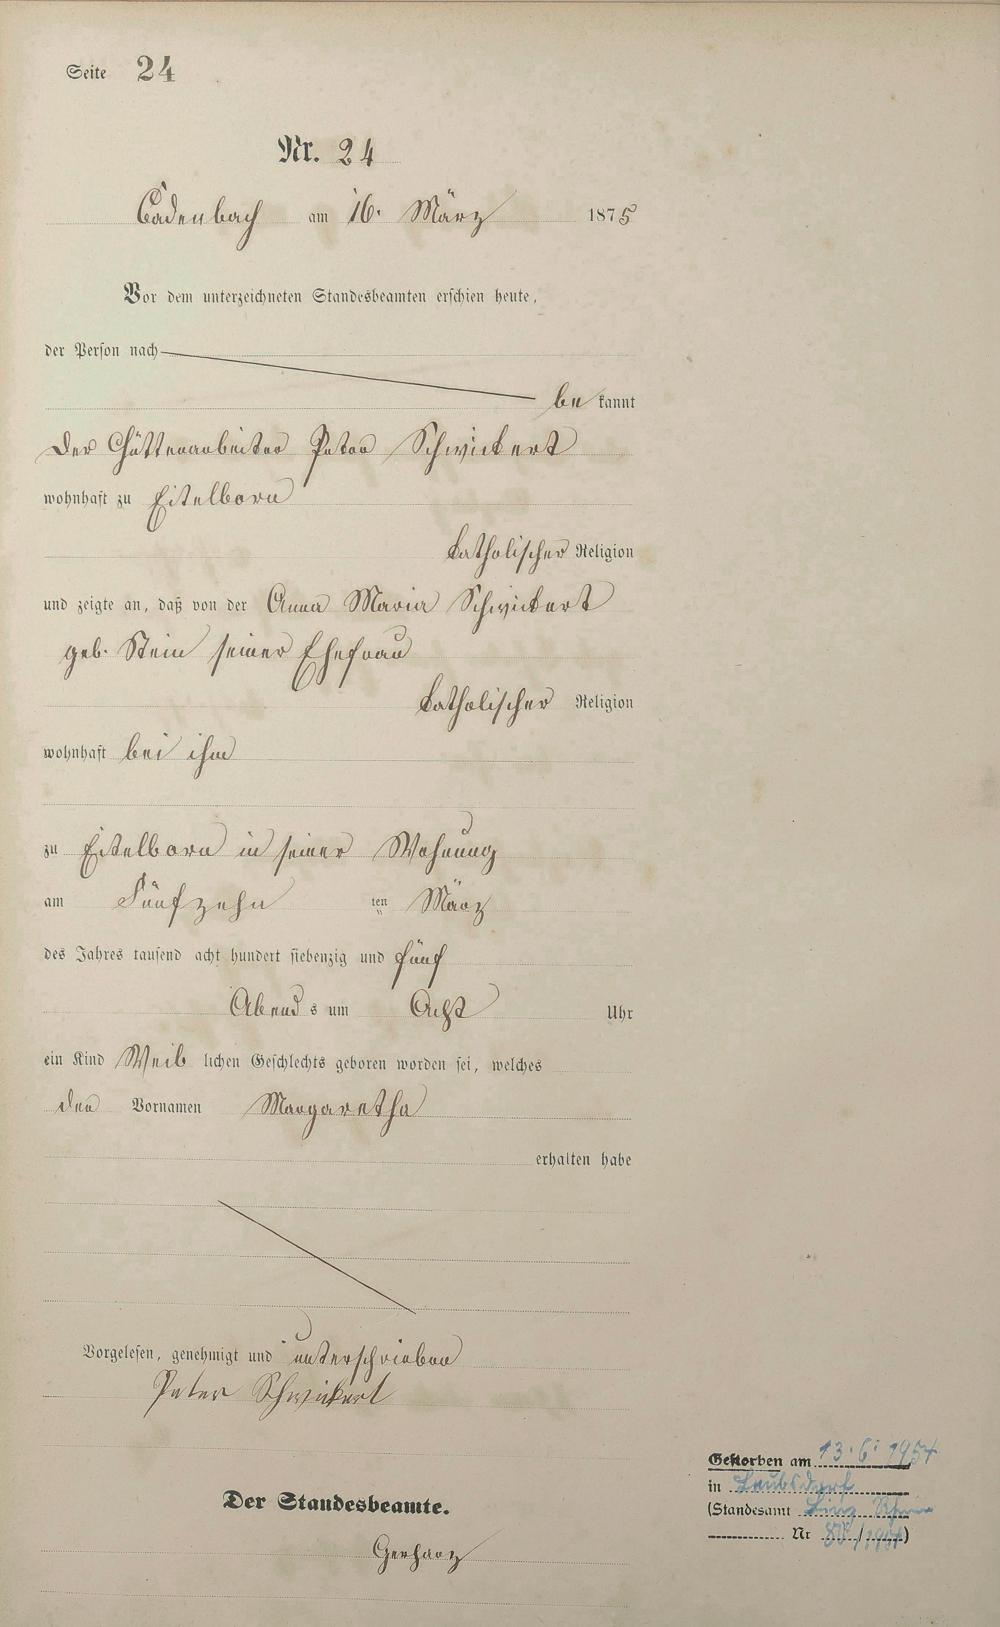 Seite 24
Nr. 24
Cadenbach am 16. März 1875
Vor dem unterzeichneten Standesbeamten erschien heute,
der Person nach
be kannt
der Hüttenarbeiter Peter Schwickert
wohnhaft zu Eitelborn
katholischer Religion
und zeigte an, daß von der Anna Maria Schwickert
geb. Stein seiner Ehefrau
katholischer Religion
wohnhaft bei ihm
zu Eitelborn in seiner Wohnung
am Fünfzehn ten März
des Jahres tausend acht hundert siebenzig und fünf
Abend s um Acht Uhr
ein Kind Weib lichen Geschlechts geboren worden sei, welches
den Vornamen Margaretha
erhalten habe
Vorgelesen, genehmigt und unterschrieben
Peter Schwickert
Der Standesbeamte.
Gerharz
Gestorben am 13.6.1954
in Leubsdorf
(Standesamt Linz Rhein
Nr /1954)